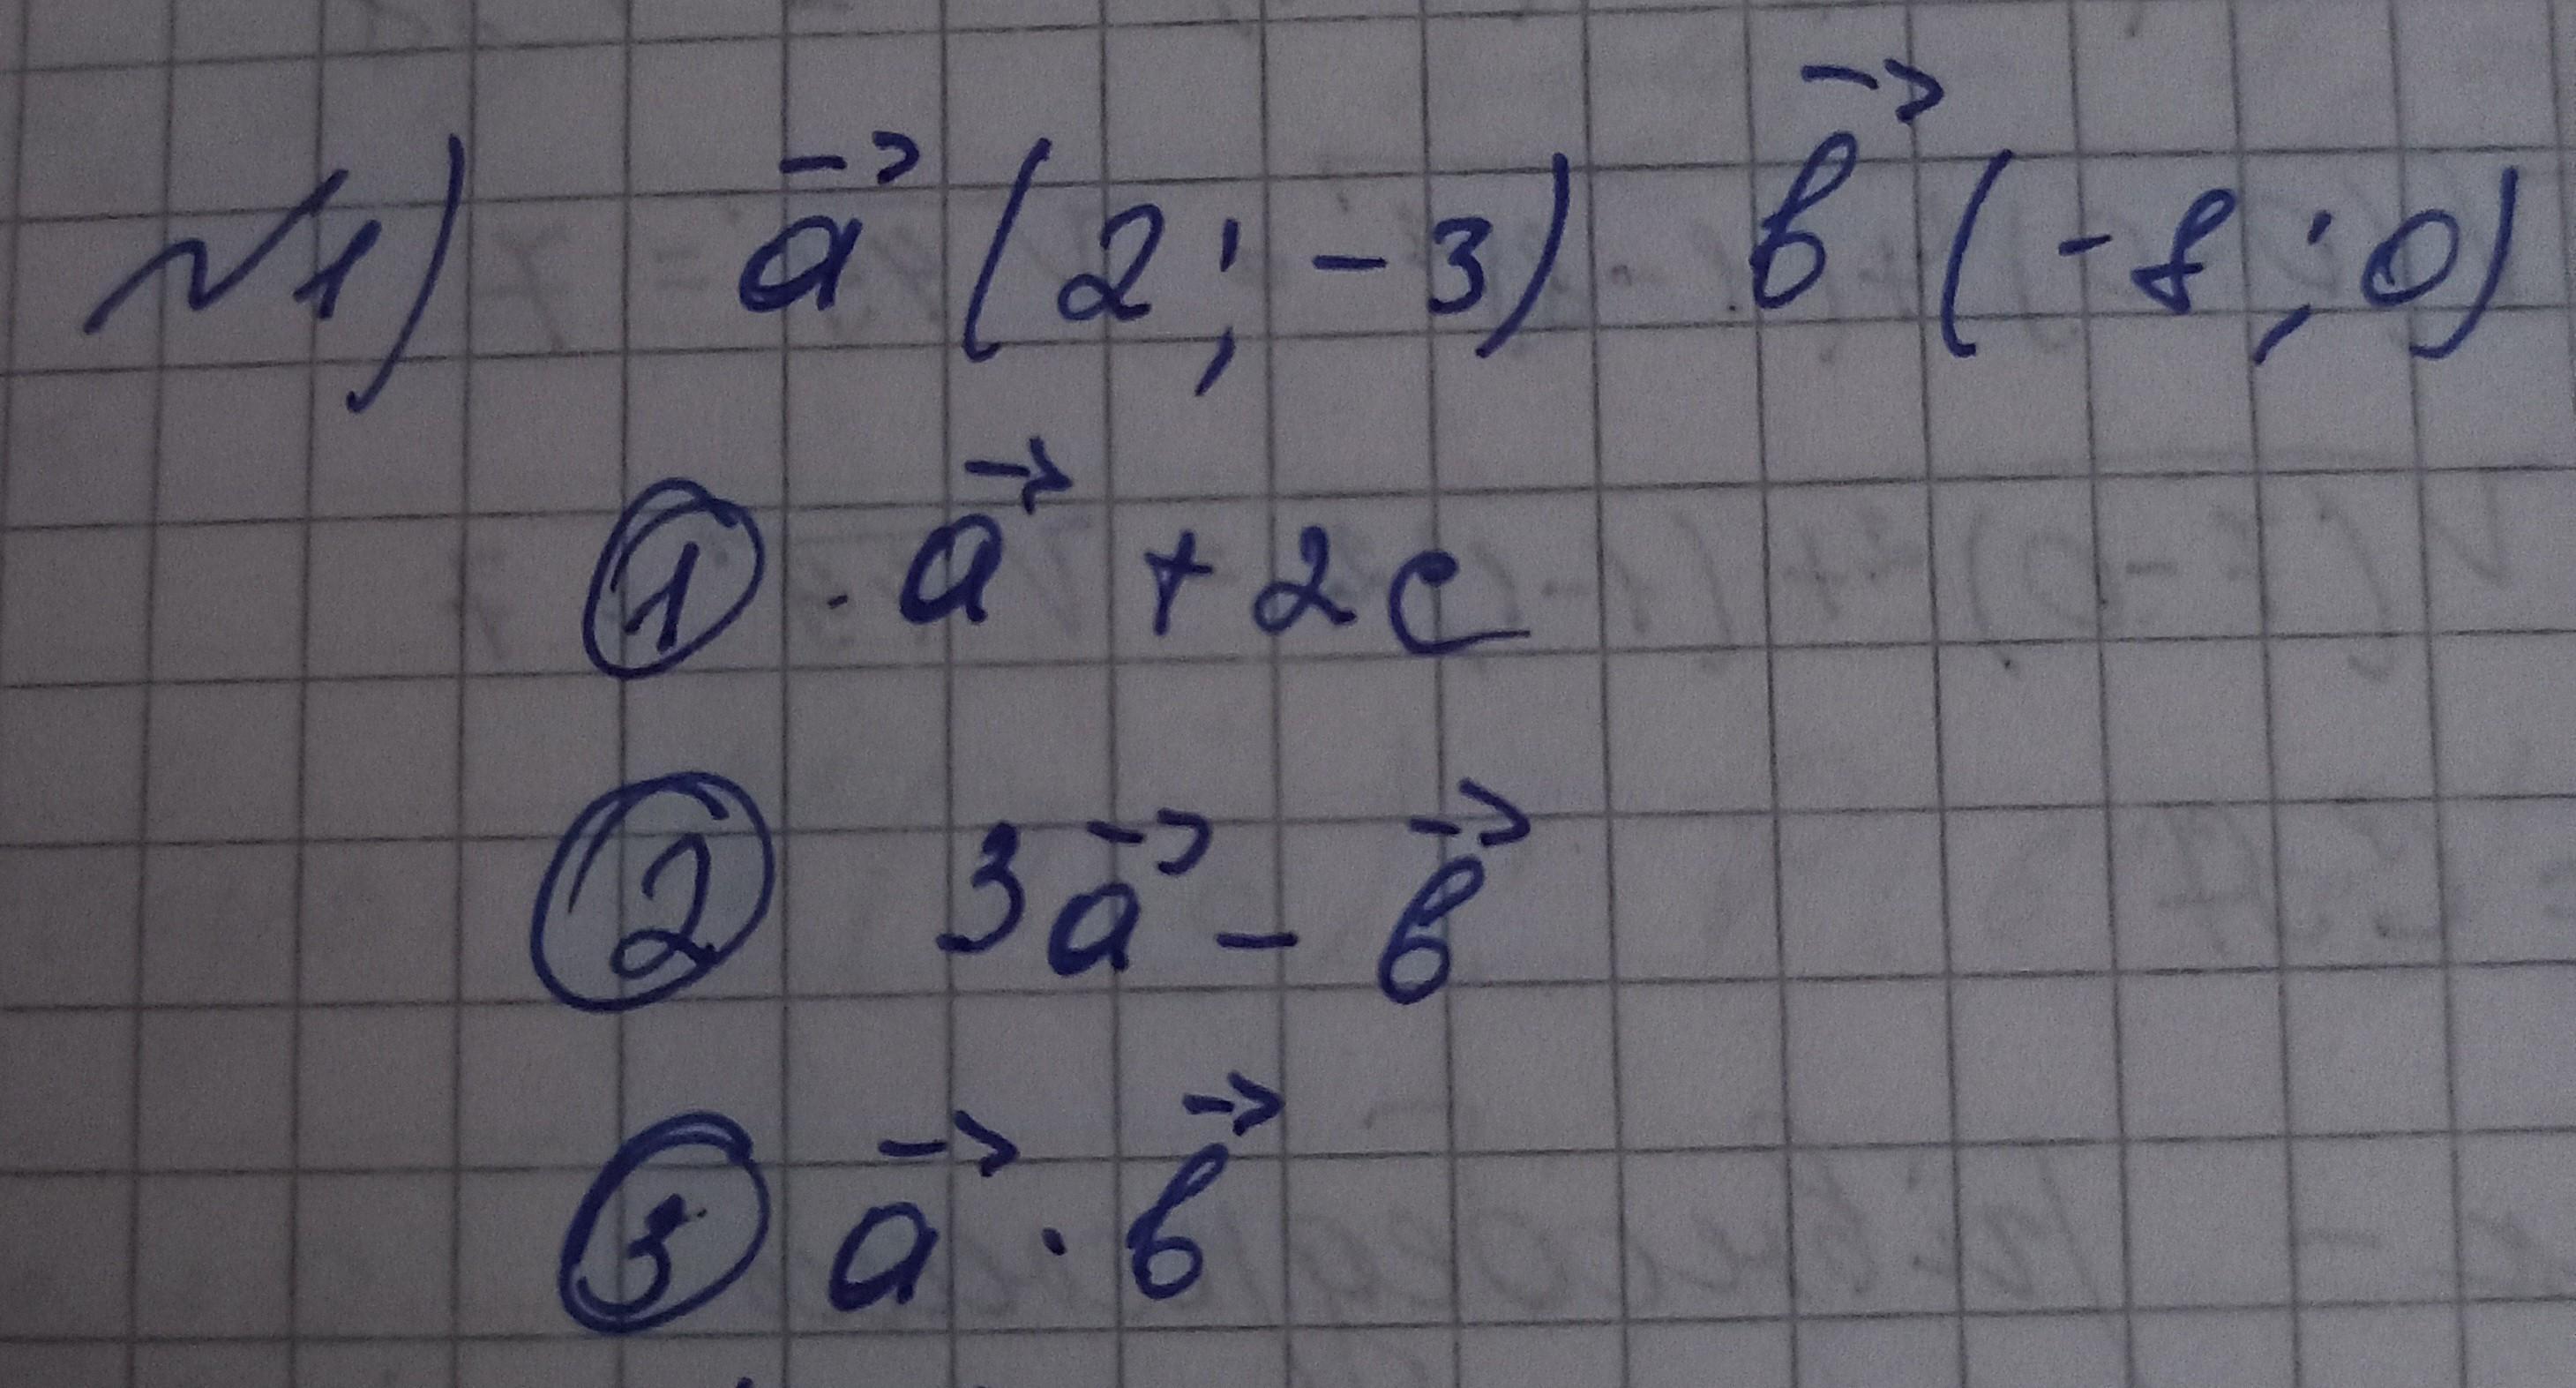 №1) a⃗ (2; -3) b⃗ (-8; 0)
① a⃗ + 2c
② 3a⃗ - b⃗
③ a⃗ · b⃗